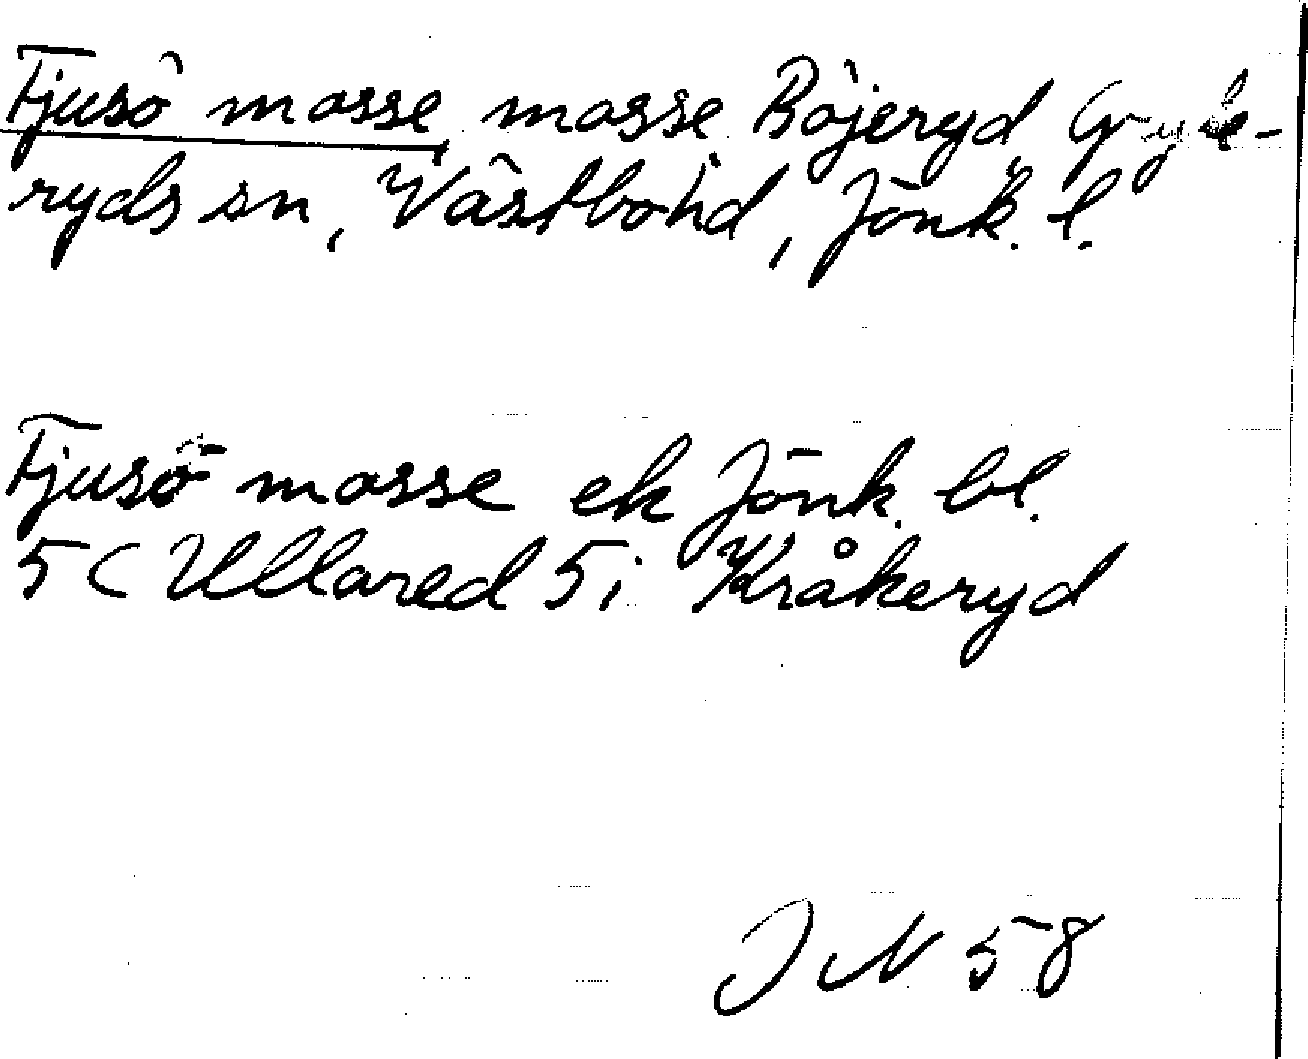 Fjusö mosse, mosse Böjeryd Gryte-
ryds sn, Västbo hd, Jönk. l.
Fjusö mosse ek Jönk. bl.
5 ( Ullared 5 i Kråkeryd
JN 58